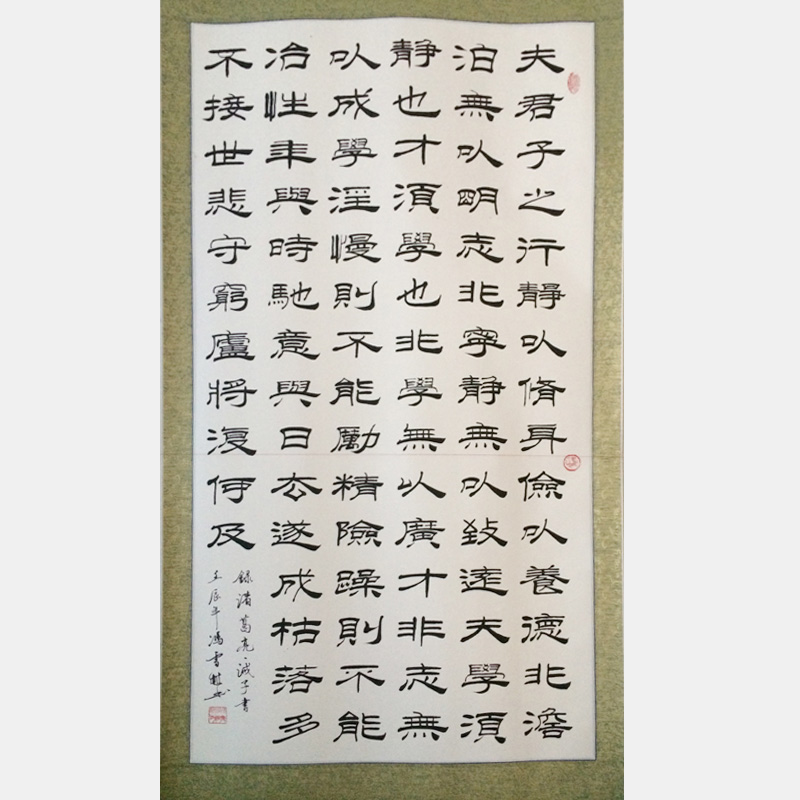 夫君子之行靜以脩身儉以養德非澹
泊無以明志非寧靜無以致遠夫學須
靜也才須學也非學無以廣才非志無
以成學淫慢則不能勵精險躁則不能
冶性年與時馳意與日去遂成枯落多
不接世悲守窮廬將復何及
錄諸葛亮誡子書
壬辰年馮雪